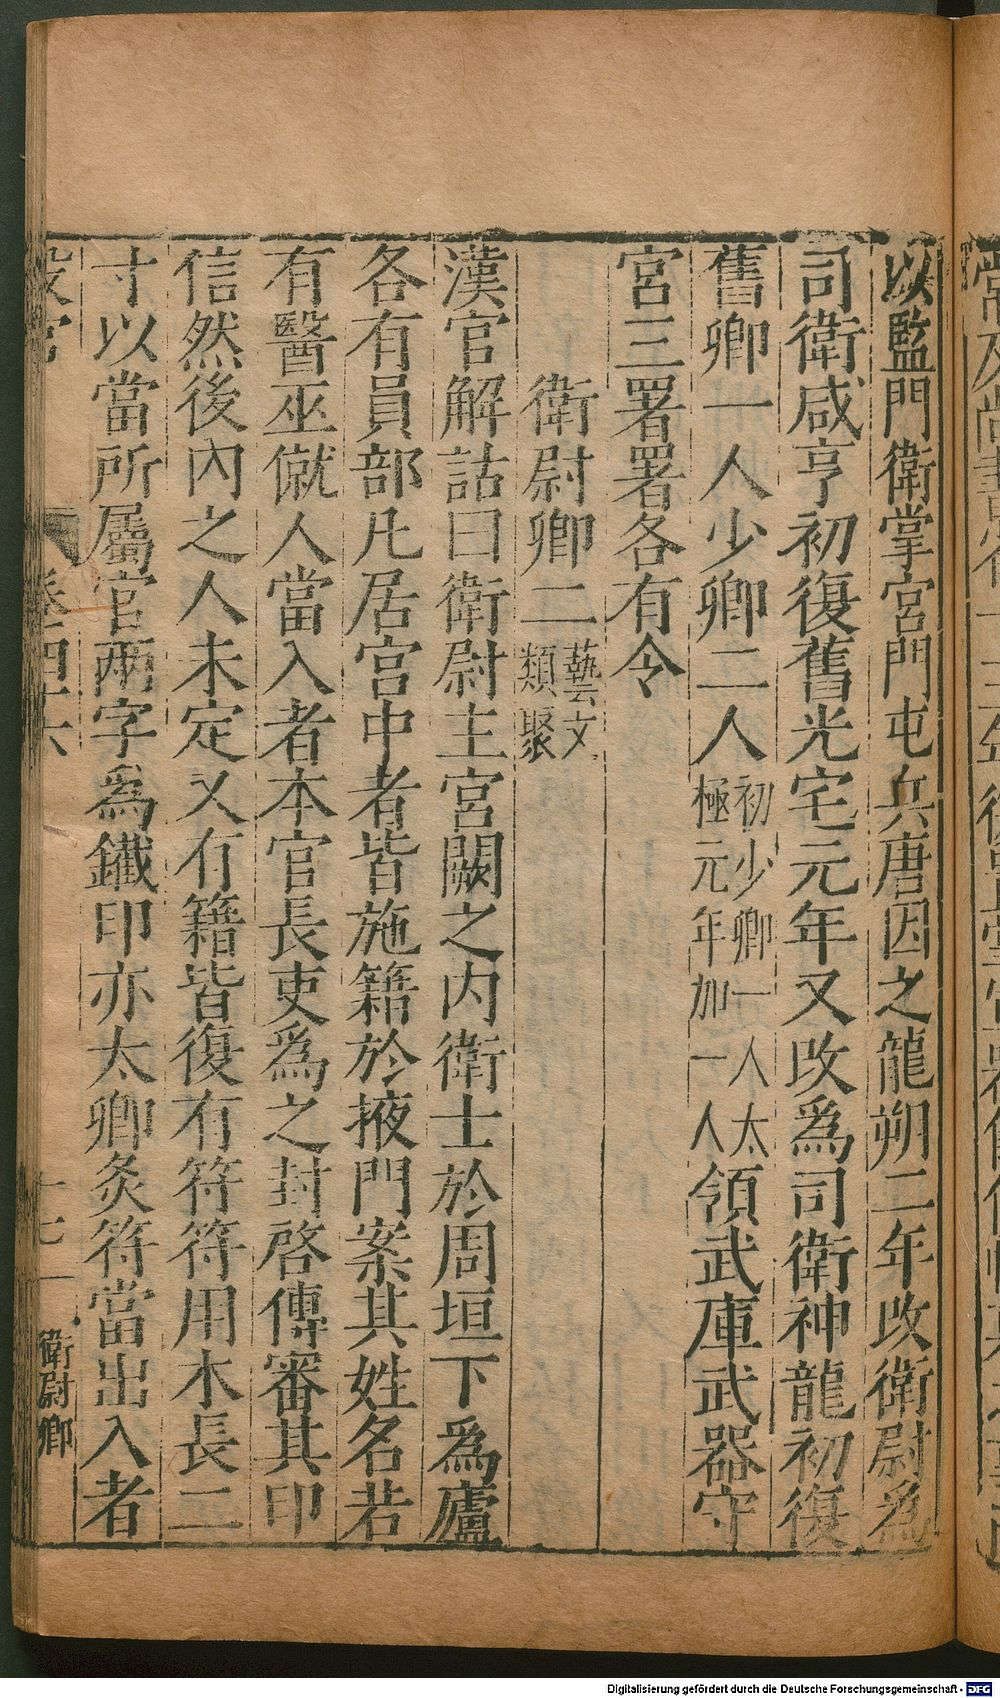 以監門衛掌宮門屯兵唐因之龍朔二年改衛尉爲
司衛咸亨初復舊光宅元年又改爲司衛神龍初復
舊卿一人少卿二人初少卿一人太極元年加一人領武庫武器守
宮三署署各有令
衛尉卿二藝文類聚
漢官解詁曰衛尉主宮闕之內衛士於周垣下爲廬
各有員部凡居宮中者皆施籍於掖門案其姓名若
有醫巫僦人當入者本官長吏爲之封啓傳審其印
信然後內之人未定又有籍皆復有符符用木長二
寸以當所屬官兩字爲鐵印亦太卿炙符當出入者
設官 卷四六 十七 衛尉卿
Digitalisierung gefördert durch die Deutsche Forschungsgemeinschaft - DFG